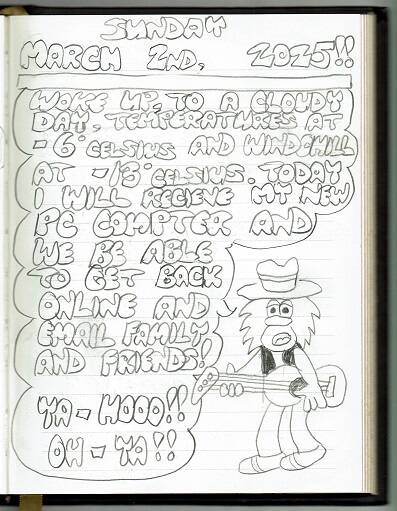 SUNDAY
MARCH 2ND, 2025!!
WOKE UP, TO A CLOUDY
DAY, TEMPERATURES AT
-6°CELSIUS AND WINDCHILL
AT -13°CELSIUS. TODAY
I WILL RECIEVE MY NEW
PC COMPTER AND
WE BE ABLE
TO GET BACK
ONLINE AND
EMAIL FAMILY
AND FRIENDS!
YA-HOOO!!
OH-YA!!